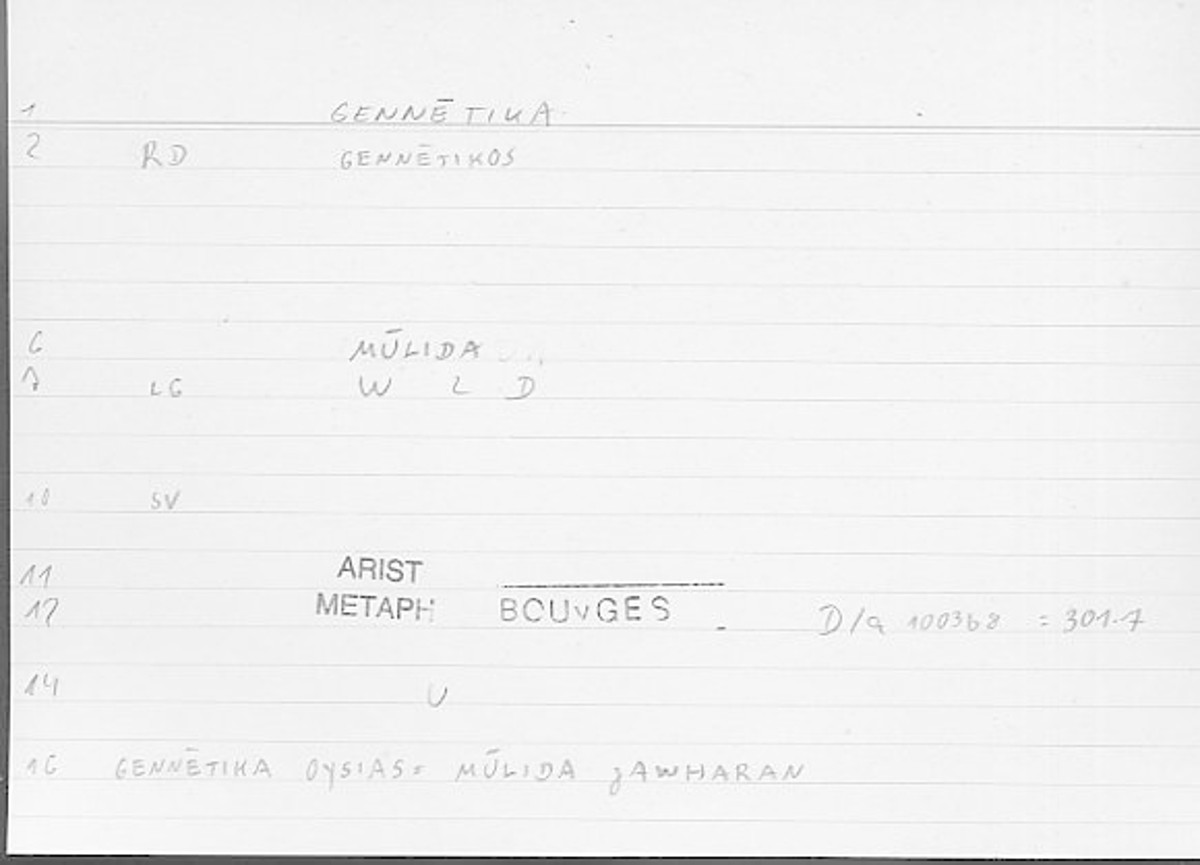 1 GENNĒTIKA
2 RD GENNĒTIKOS
6 MŪLIDA
7 LG W L D
10 SV
11 ARIST
12 METAPH BOUYGES D/a 1003b8 = 301.7
14 U
16 GENNĒTIKA OYSIAS = MŪLIDA ǧAWHARAN